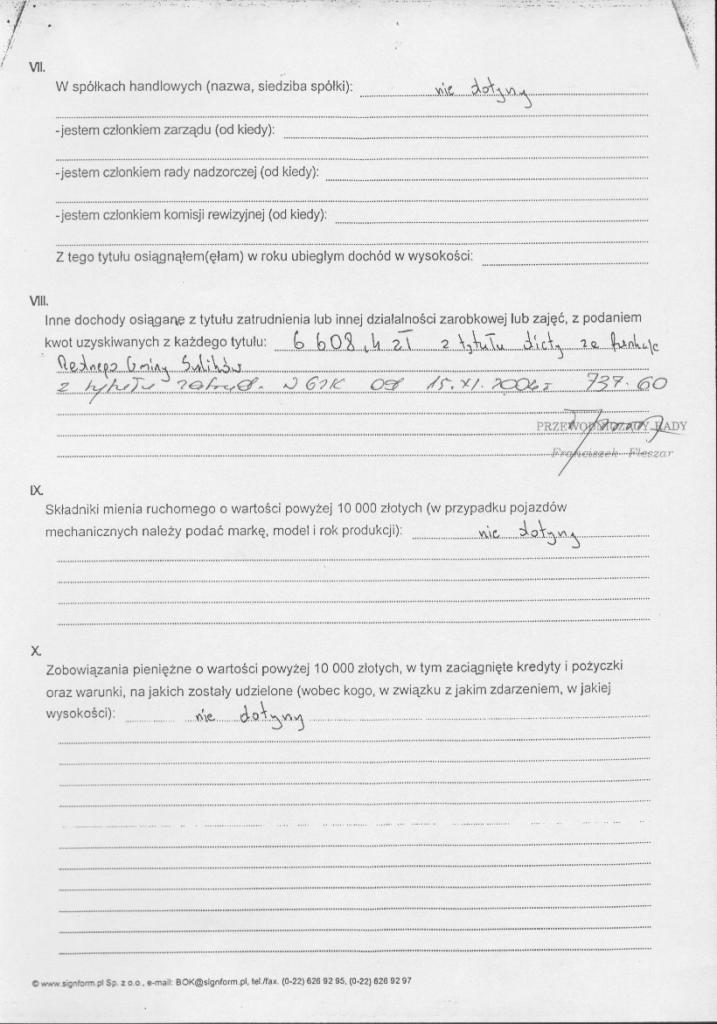 VII.
W spółkach handlowych (nazwa, siedziba spółki): nie dotyczy
-jestem członkiem zarządu (od kiedy):
-jestem członkiem rady nadzorczej (od kiedy):
-jestem członkiem komisji rewizyjnej (od kiedy):
Z tego tytułu osiągnąłem(ęłam) w roku ubiegłym dochód w wysokości:
VIII.
Inne dochody osiągane z tytułu zatrudnienia lub innej działalności zarobkowej lub zajęć, z podaniem
kwot uzyskiwanych z każdego tytułu: 6 608,4 zł z tytułu diety za funkcję
Radnego Gminy Sulików
z tytułu zatrud. w GZK od 15.XI.2006r 737.60
PRZEWODNICZĄCY RADY
Franciszek Fleszar
IX.
Składniki mienia ruchomego o wartości powyżej 10 000 złotych (w przypadku pojazdów
mechanicznych należy podać markę, model i rok produkcji): nie dotyczy
X.
Zobowiązania pieniężne o wartości powyżej 10 000 złotych, w tym zaciągnięte kredyty i pożyczki
oraz warunki, na jakich zostały udzielone (wobec kogo, w związku z jakim zdarzeniem, w jakiej
wysokości): nie dotyczy
© www.signform.pl Sp. z o.o., e-mail: BOK@signform.pl, tel./fax. (0-22) 626 92 95, (0-22) 626 92 97